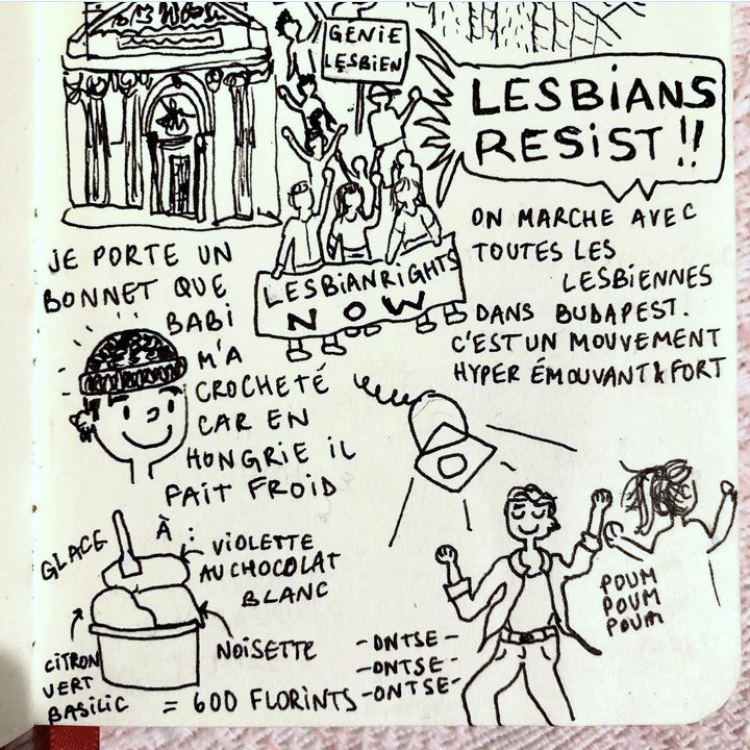 GENIE
LESBIEN
LESBIANS
RESIST !!
LESBIANRIGHTS
NOW
ON MARCHE AVEC
TOUTES LES
LESBIENNES
DANS BUDAPEST.
C'EST UN MOUVEMENT
HYPER ÉMOUVANT & FORT
JE PORTE UN
BONNET QUE
BABI
M'A
CROCHETÉ
CAR EN
HONGRIE IL
FAIT FROID
GLACE À :
VIOLETTE
AU CHOCOLAT
BLANC
NOISETTE
CITRON
VERT
BASILIC
= 600 FLORINTS
-ONTSE-
-ONTSE-
-ONTSE-
POUM
POUM
POUM